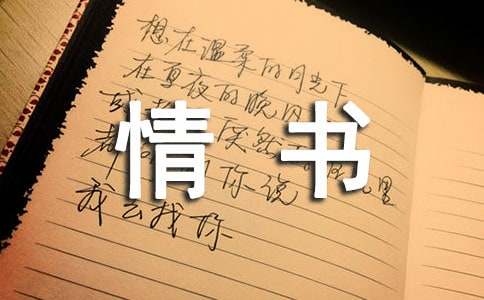 想在温柔的月光下
在夏夜的晚风
或 突然 里
都 你说
我会找你
情书